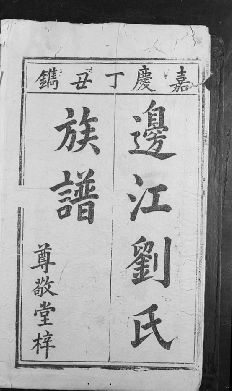 嘉慶丁丑鐫
邊江劉氏
族譜
尊敬堂梓